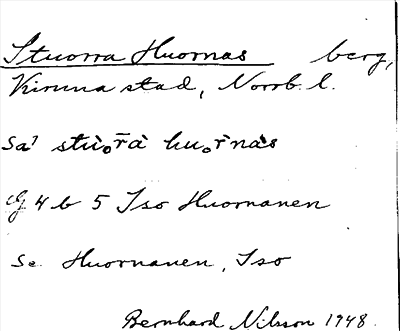 Stuorra Huornas berg,
Kiruna stad, Norrb. l.
sa¹ stù̲or̄à hu̲oŕnàs
4 b 5 Iso Huornanen
Se Huornanen, Iso
Bernhard Nilsson 1948.